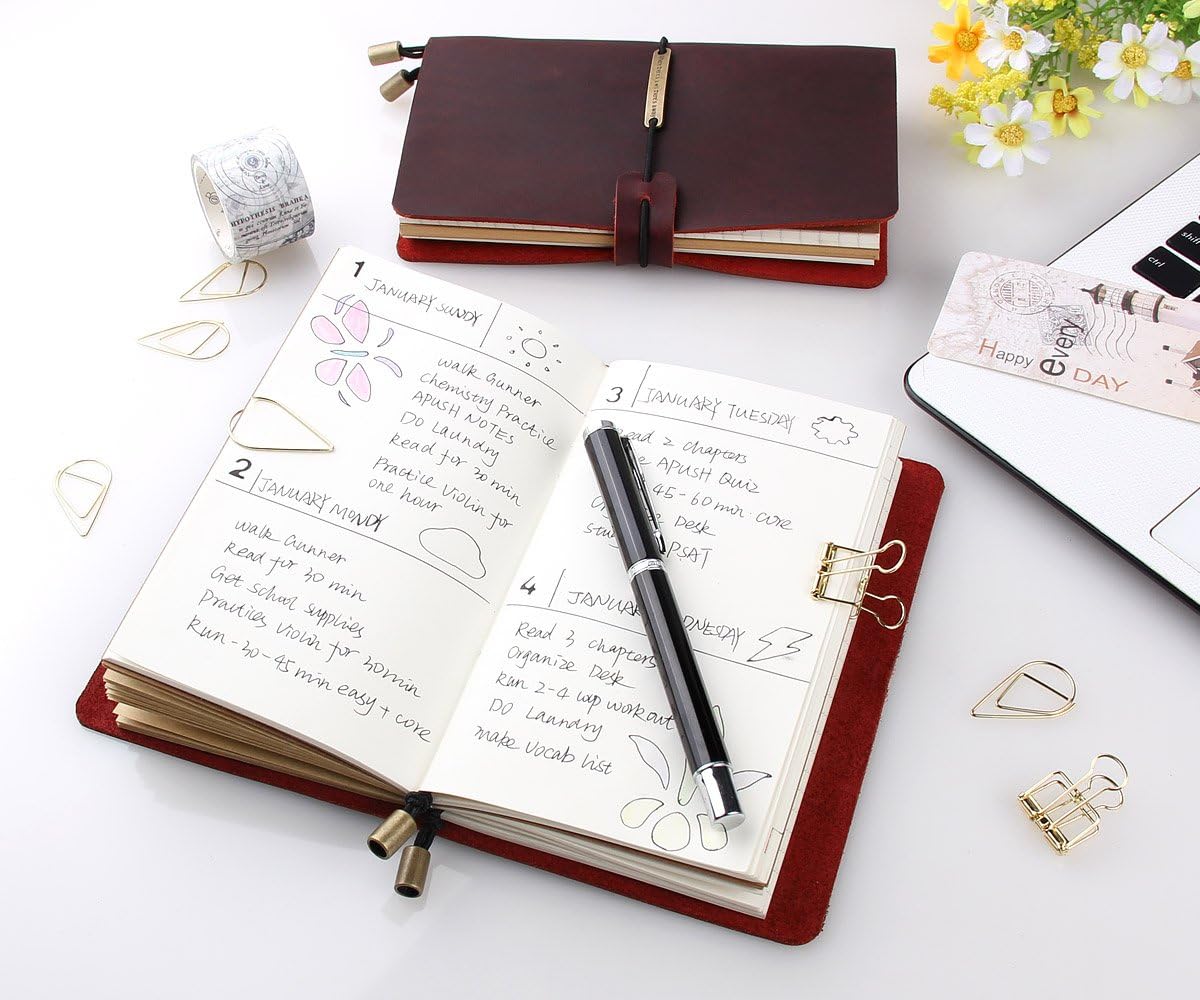 HYPOTHESIS
shift
ctrl
Happy every DAY
1 JANUARY SUNDY
walk Gunner
chemistry Practice
APUSH NOTES
Do Laundry
Read for 30 min
Practice Violin for
one hour
2 JANUARY MONDY
walk Gunner
Read for 30 min
Get school supplies
Practices Violin for 30min
Run-30-45 min easy + core
3 JANUARY TUESDAY
Read 2 chapters
APUSH Quiz
45-60 min. core
Desk
PSAT
4
Read 3 chapters
Organize Desk
Run 2-4 wup workout
DO Laundry
make vocab list